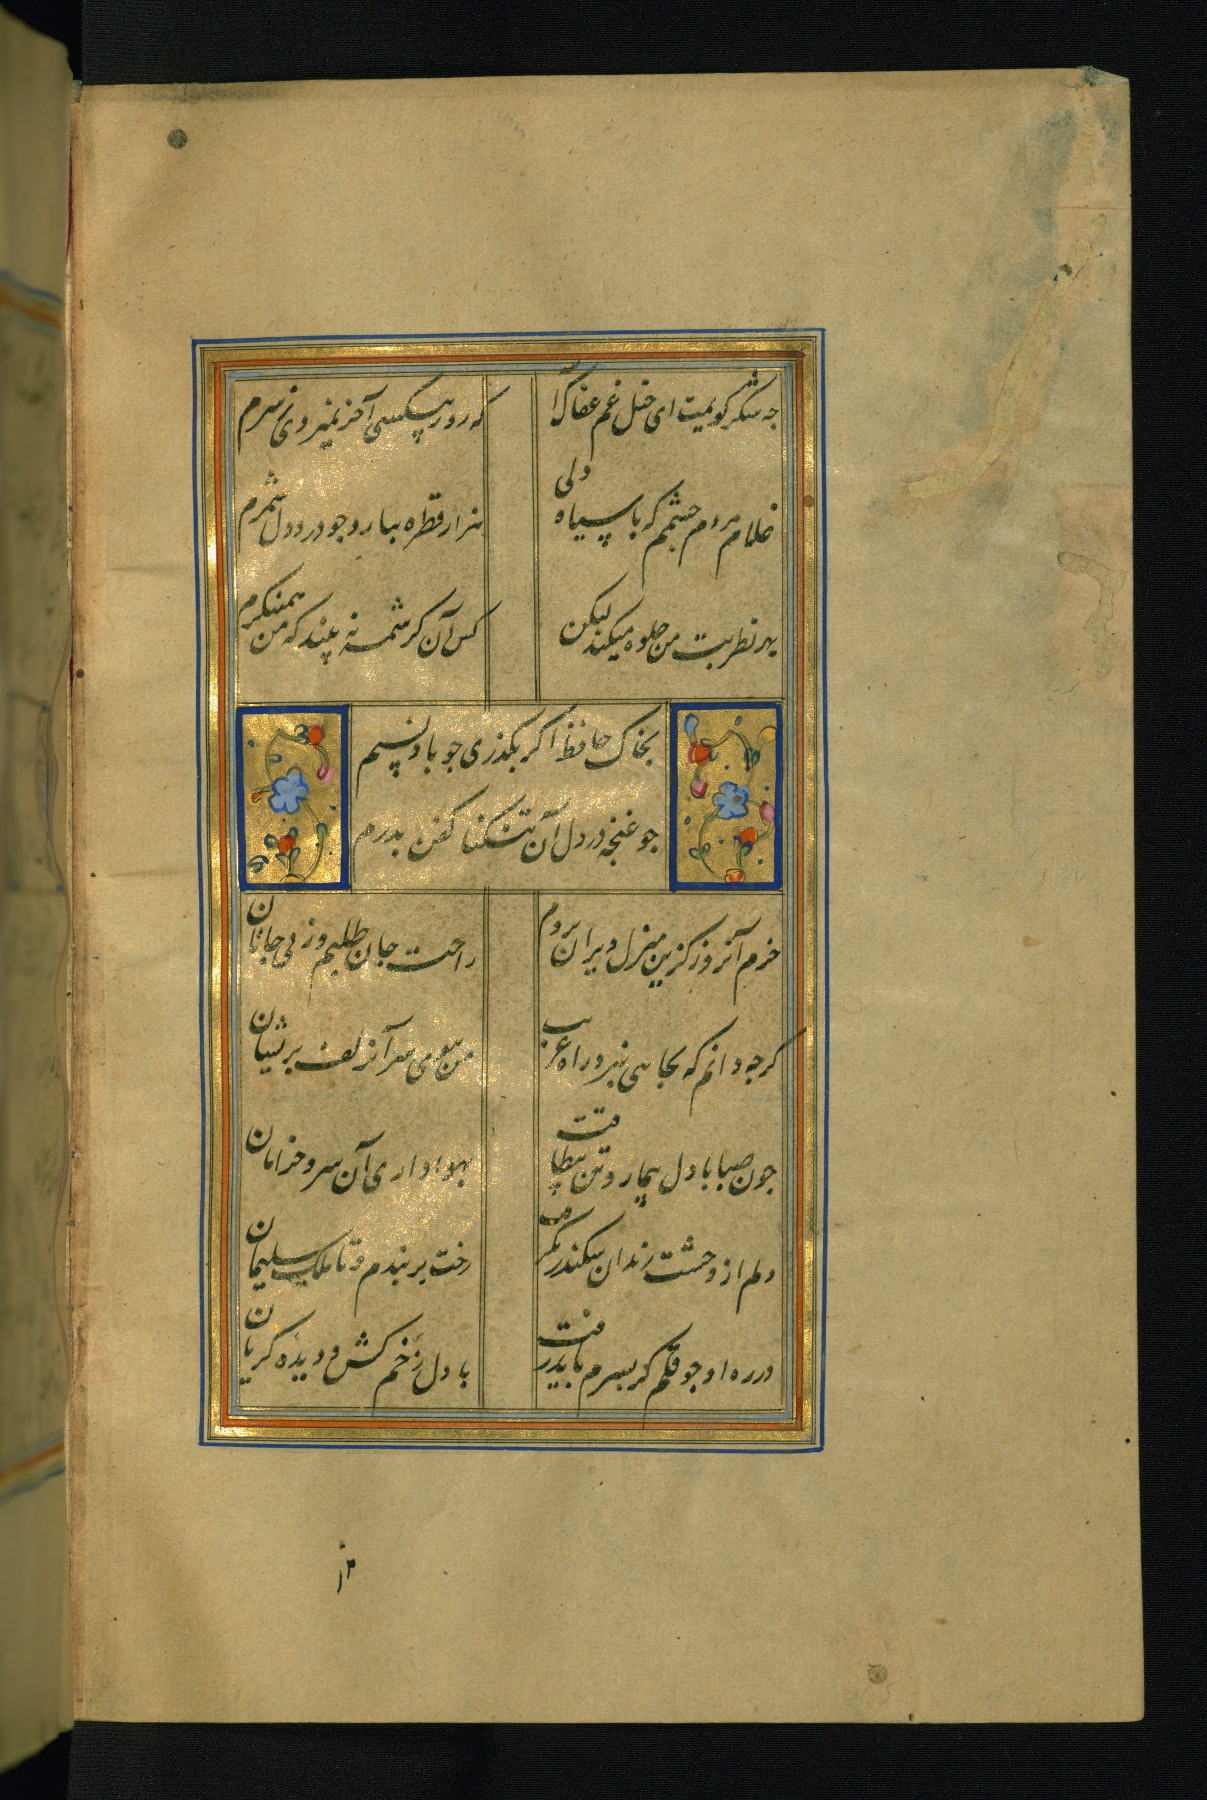 چه شکر گویمت ای خیل غم عفاک الله
که روز بیکسی آخر نمیروی ز سرم
غلام مردم چشمم که با سیاه دلی
هزار قطره ببارد چو درد دل شمرم
بهر نظر بت من جلوه میکند لیکن
کس آن کرشمه نه بیند که من همینکرم
بخاک حافظ اکر بکذری جو باد نسیم
جو غنجه در دل آن تنکنا کفن بدرم
خرم آنروز کزین منزل ویران بروم
راحت جان طلبم وز پی جانان
کرجه دانم که بجایی نبرد راه غریب
من ببوی سر آن زلف پریشان
جون صبا با دل بیمار و تن بیطاقت
بهواداری آن سرو خرامان
دلم از وحشت زندان سکندر بکرفت
رخت بربندم و تا ملک سلیمان
در ره او جو قلم کر بسرم باید رفت
با دل زخم کش و دیده کریان